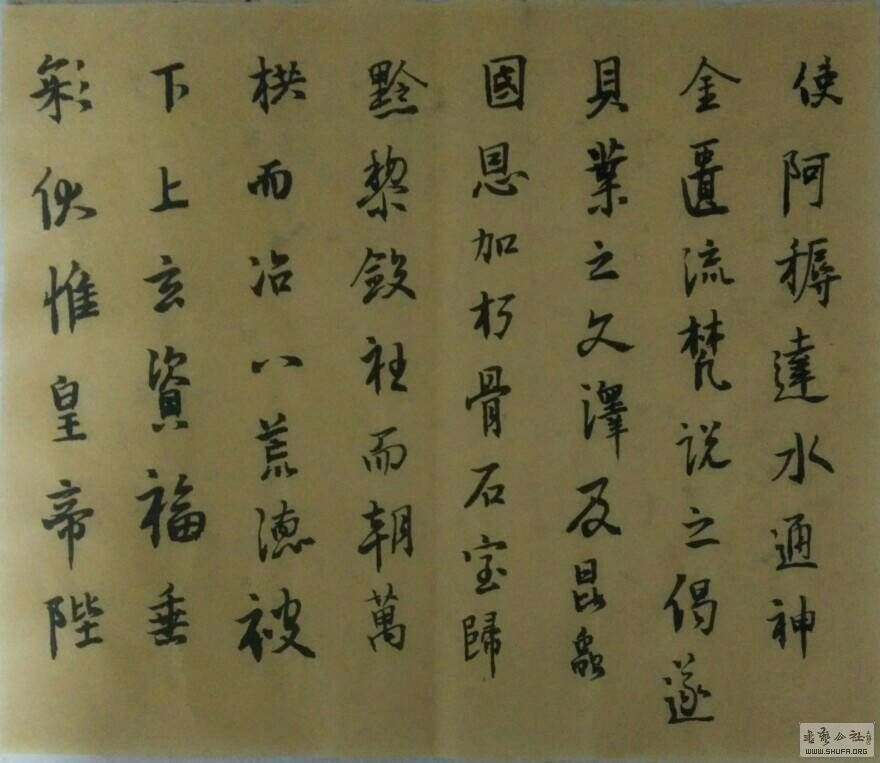 使阿耨達水通神
金匱流梵説之偈遂
貝葉之文澤及昆蟲
國恩加朽骨石室歸
黔黎斂衽而朝萬
拱而治八荒德被
下上玄資福垂
彩伏惟皇帝陛
WWW.SHUFA.ORG